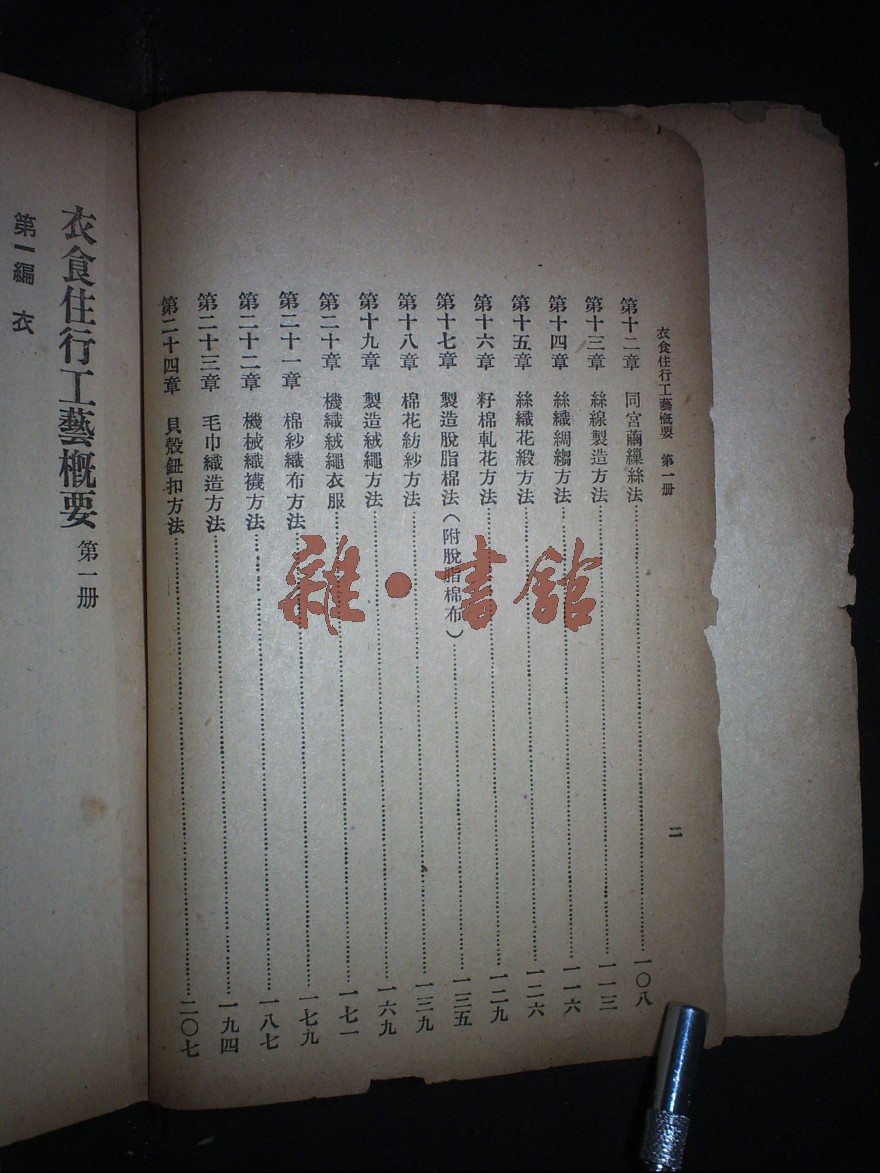 衣食住行工藝概要 第一册
二
第十二章 同宮繭繅絲法 一〇八
第十三章 絲線製造方法 一一三
第十四章 絲織綢縐方法 一一六
第十五章 絲織花緞方法 一二六
第十六章 籽棉軋花方法 一二九
第十七章 製造脫脂棉法(附脫脂棉布) 一三五
第十八章 棉花紡紗方法 一三九
第十九章 製造絨繩方法 一六九
第二十章 機織絨繩衣服 一七一
第二十一章 棉紗織布方法 一七九
第二十二章 機械織襪方法 一八七
第二十三章 毛巾織造方法 一九四
第二十四章 貝殼鈕扣方法 二〇七
衣食住行工藝概要 第一册
第一編 衣
雜·書舘